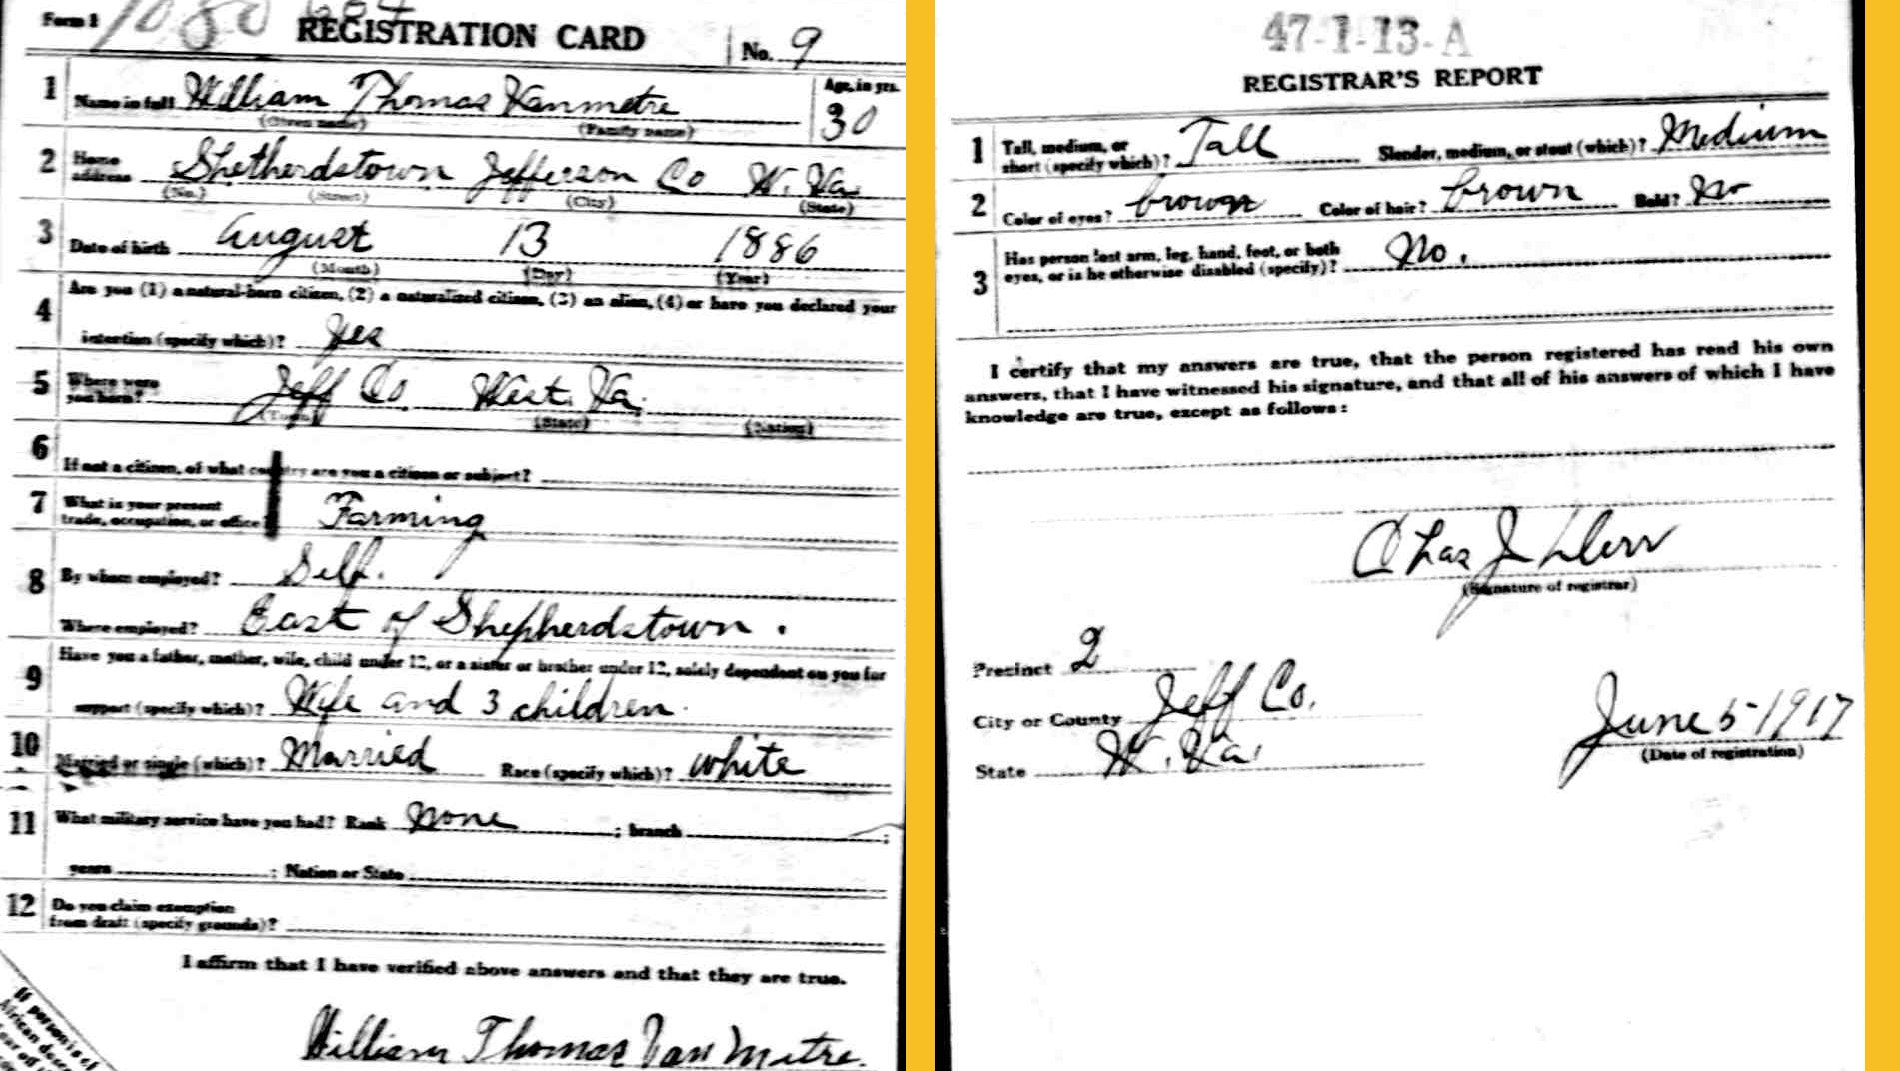 Form 1 REGISTRATION CARD No. 9
1 Name in full William Thomas Vanmetre Age, in yrs. 30
(Given name) (Family name)
2 Home address Shetherdstown Jefferson Co W. Va.
(No.) (Street) (City) (State)
3 Date of birth August 13 1886
(Month) (Day) (Year)
4 Are you (1) a natural-born citizen, (2) a naturalized citizen, (3) an alien, (4) or have you declared your
intention (specify which)? Yes
5 Where were you born? Jeff Co West. Va.
(Town) (State) (Nation)
6 If not a citizen, of what country are you a citizen or subject?
7 What is your present
trade, occupation, or office? Farming
8 By whom employed? Self.
Where employed? East of Shepherdstown.
9 Have you a father, mother, wife, child under 12, or a sister or brother under 12, solely dependent on you for
support (specify which)? Wife and 3 children.
10 Married or single (which)? Married Race (specify which)? white
11 What military service have you had? Rank None ; branch ;
years ; Nation or State
12 Do you claim exemption
from draft (specify grounds)?
I affirm that I have verified above answers and that they are true.
William Thomas Van Metre.
If person is of
African
47-1-13-A
REGISTRAR'S REPORT
1 Tall, medium, or
short (specify which)? Tall Slender, medium, or stout (which)? Medium
2 Color of eyes? brown Color of hair? brown Bald? No
3 Has person lost arm, leg, hand, foot, or both
eyes, or is he otherwise disabled (specify)? No.
I certify that my answers are true, that the person registered has read his own
answers, that I have witnessed his signature, and that all of his answers of which I have
knowledge are true, except as follows:
Chas J
(Signature of registrar)
Precinct 2
City or County Jeff Co.
State W. Va.
June 5-1917
(Date of registration)